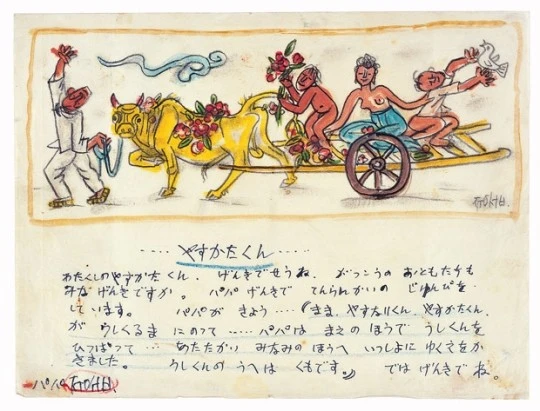 GOHN.
‥‥ やすかたくん ‥‥
わたくしのやすかたくん、げんきでせうね、がっこうの おともだちも
みなげんきですか。 パパ げんきで てんらんかいの じゅんびを
しています。 パパが きょう‥‥『まま、やすなりくん、やすかたくん、
が うしくるま にのって ‥‥‥ パパは まえの ほうで うしくんを
ひっぱって ‥‥ あたたかい みなみの ほうへ いっしょに ゆくえをか
きました。 うしくんの うへは くもです。』 では げんきで ね。
パパ